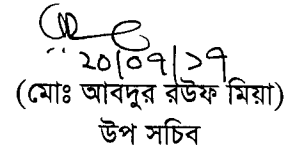 ২০/০৭/১৭
(মোঃ আবদুর রউফ মিয়া)
উপ সচিব